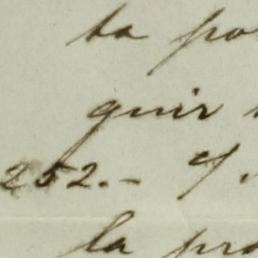 ta po
quir
252.-
la pro